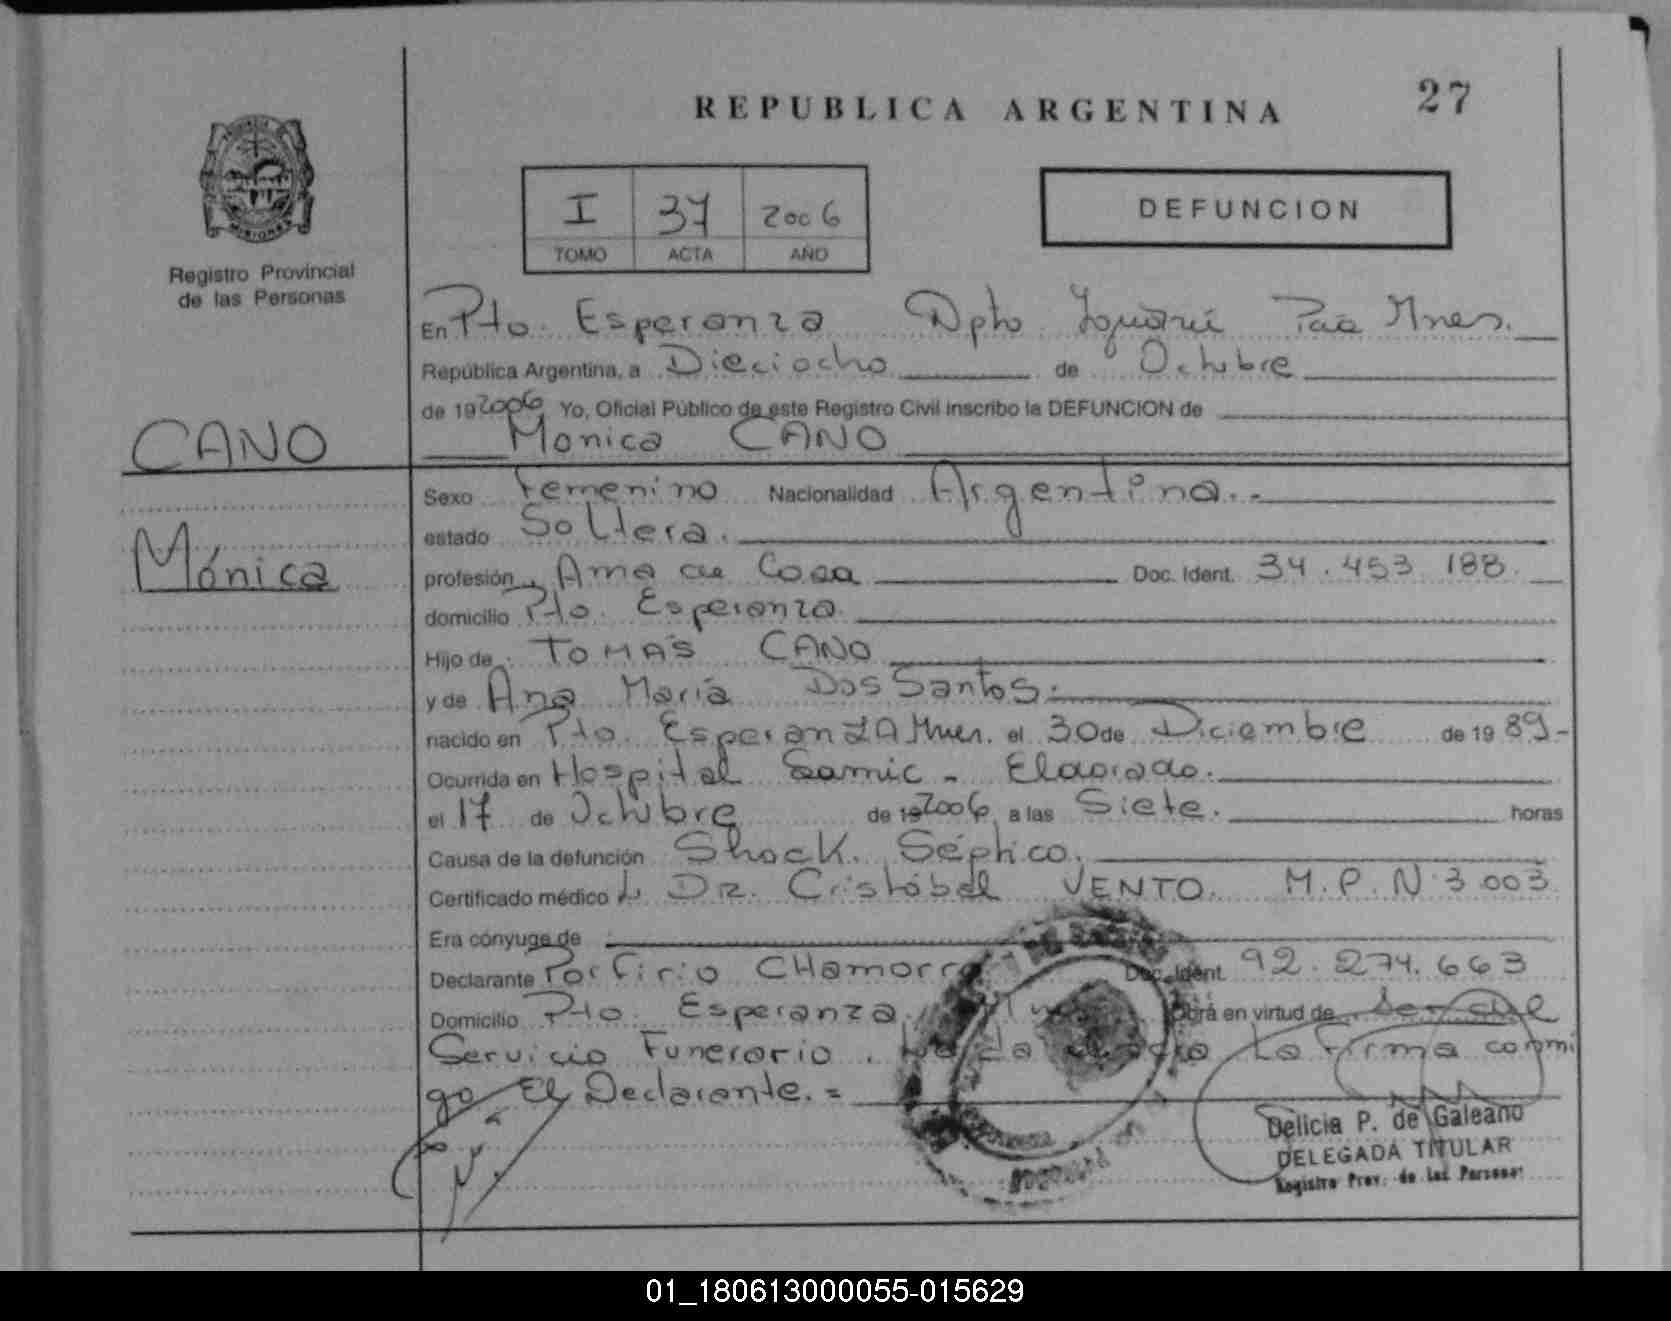 REPUBLICA ARGENTINA
27
I 37 2006
TOMO ACTA AÑO
DEFUNCION
MISIONES
Registro Provincial
de las Personas
CANO
Mónica
En Pto. Esperanza Dpto Iguazú Pcia Mnes.
República Argentina, a Dieciocho de Octubre
de 19 2006 Yo, Oficial Público de este Registro Civil inscribo la DEFUNCION de
Monica CANO
Sexo Femenino Nacionalidad Argentina.-
estado Soltera.
profesión Ama de Casa Doc. Ident. 34.453 188
domicilio Pto. Esperanza.
Hijo de TOMAS CANO
y de Ana Maria Dos Santos.
nacido en Pto. EsperanZA Mnes. el 30 de Diciembre de 19 89-
Ocurrida en Hospital Samic - Eldorado.
el 17 de Octubre de 19 2006 a las Siete. horas
Causa de la defunción Shock. Séptico.
Certificado médico DR. Cristóbal VENTO. M.P.N 3003
Era cónyuge de
Declarante Porfirio CHamorro Doc. Ident. 92.274.663
Domicilio Pto. Esperanza, Obra en virtud de Ser del
Servicio Funerario. la Firma conmi
go El Declarante.=
Delicia P. de Galeano
DELEGADA TITULAR
Registro Prov. de las Personas
01_180613000055-015629